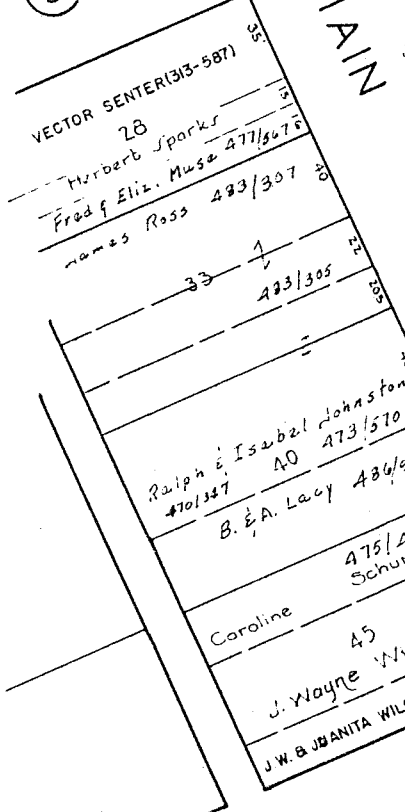 MAIN
35
VECTOR SENTER(313-587)
28
15
Herbert Sparks
Fred & Eliz. Muse 477/567
James Ross 483/307
40
33
22
483/305
205
Ralph & Isabel Johnston
470/347 40 473/570
B. & A. Lacy 486/
475/
Caroline
45
J. Wayne
J.W. & JUANITA